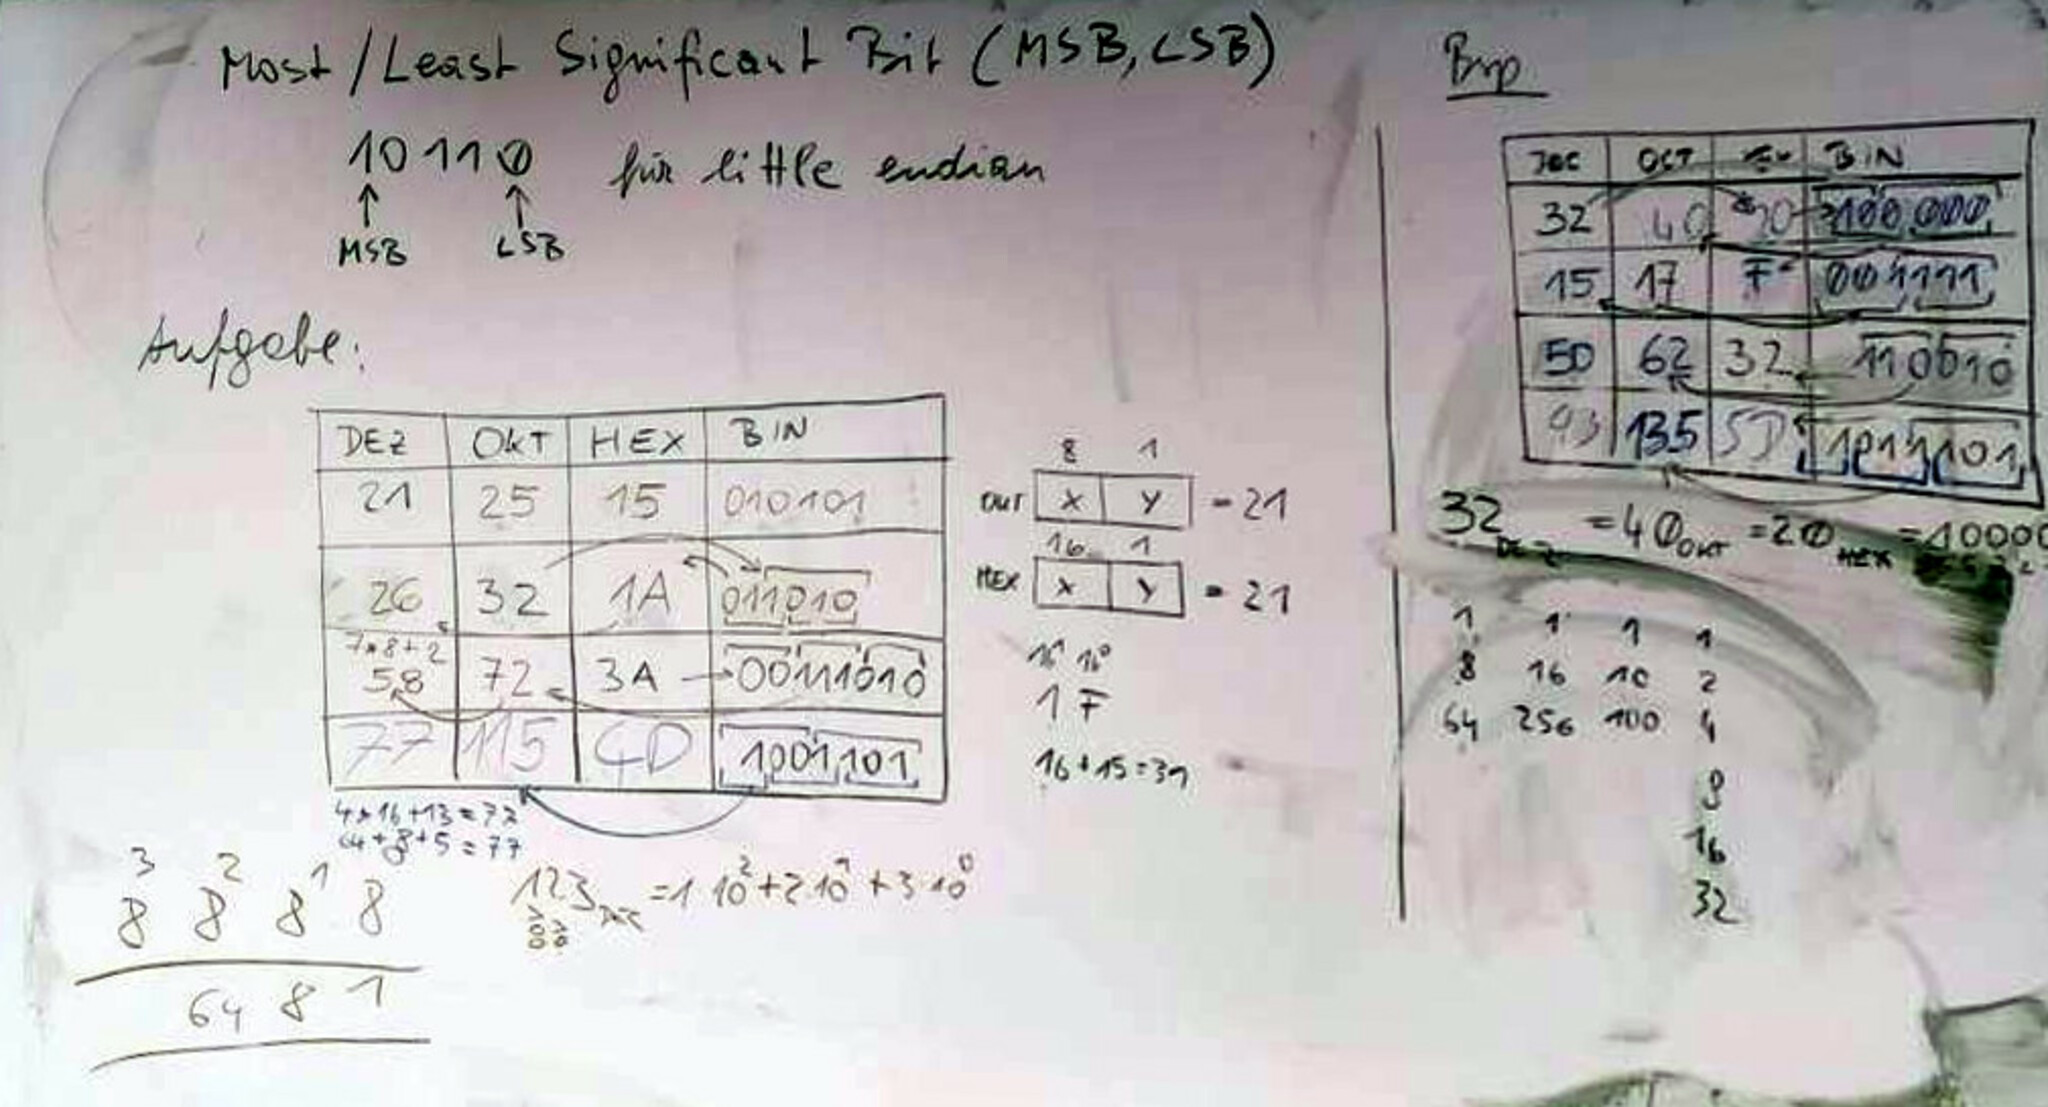 Most/Least Significant Bit (MSB, LSB)
10110 für little endian
MSB LSB
Aufgabe:
DEZ OKT HEX BIN
21 25 15 010101
26 32 1A 011010
7*8+2
58 72 3A 00111010
77 115 4D 1001101
4*16+13=77
64+8+5=77
8 1
OKT X Y = 21
16 1
HEX X Y = 21
16¹ 16⁰
1 F
16+15=31
8³ 8² 8¹ 8
64 8 1
123 DEZ = 1·10²+2·10¹+3·10⁰
Bsp
DEC OCT BIN
32 40 20 100000
15 17 F 001111
50 62 32 110010
93 135 5D 1011101
32 DEZ = 40 OKT = 20 HEX = 10000
1 1 1 1
8 16 10 2
64 256 100 4
8
16
32